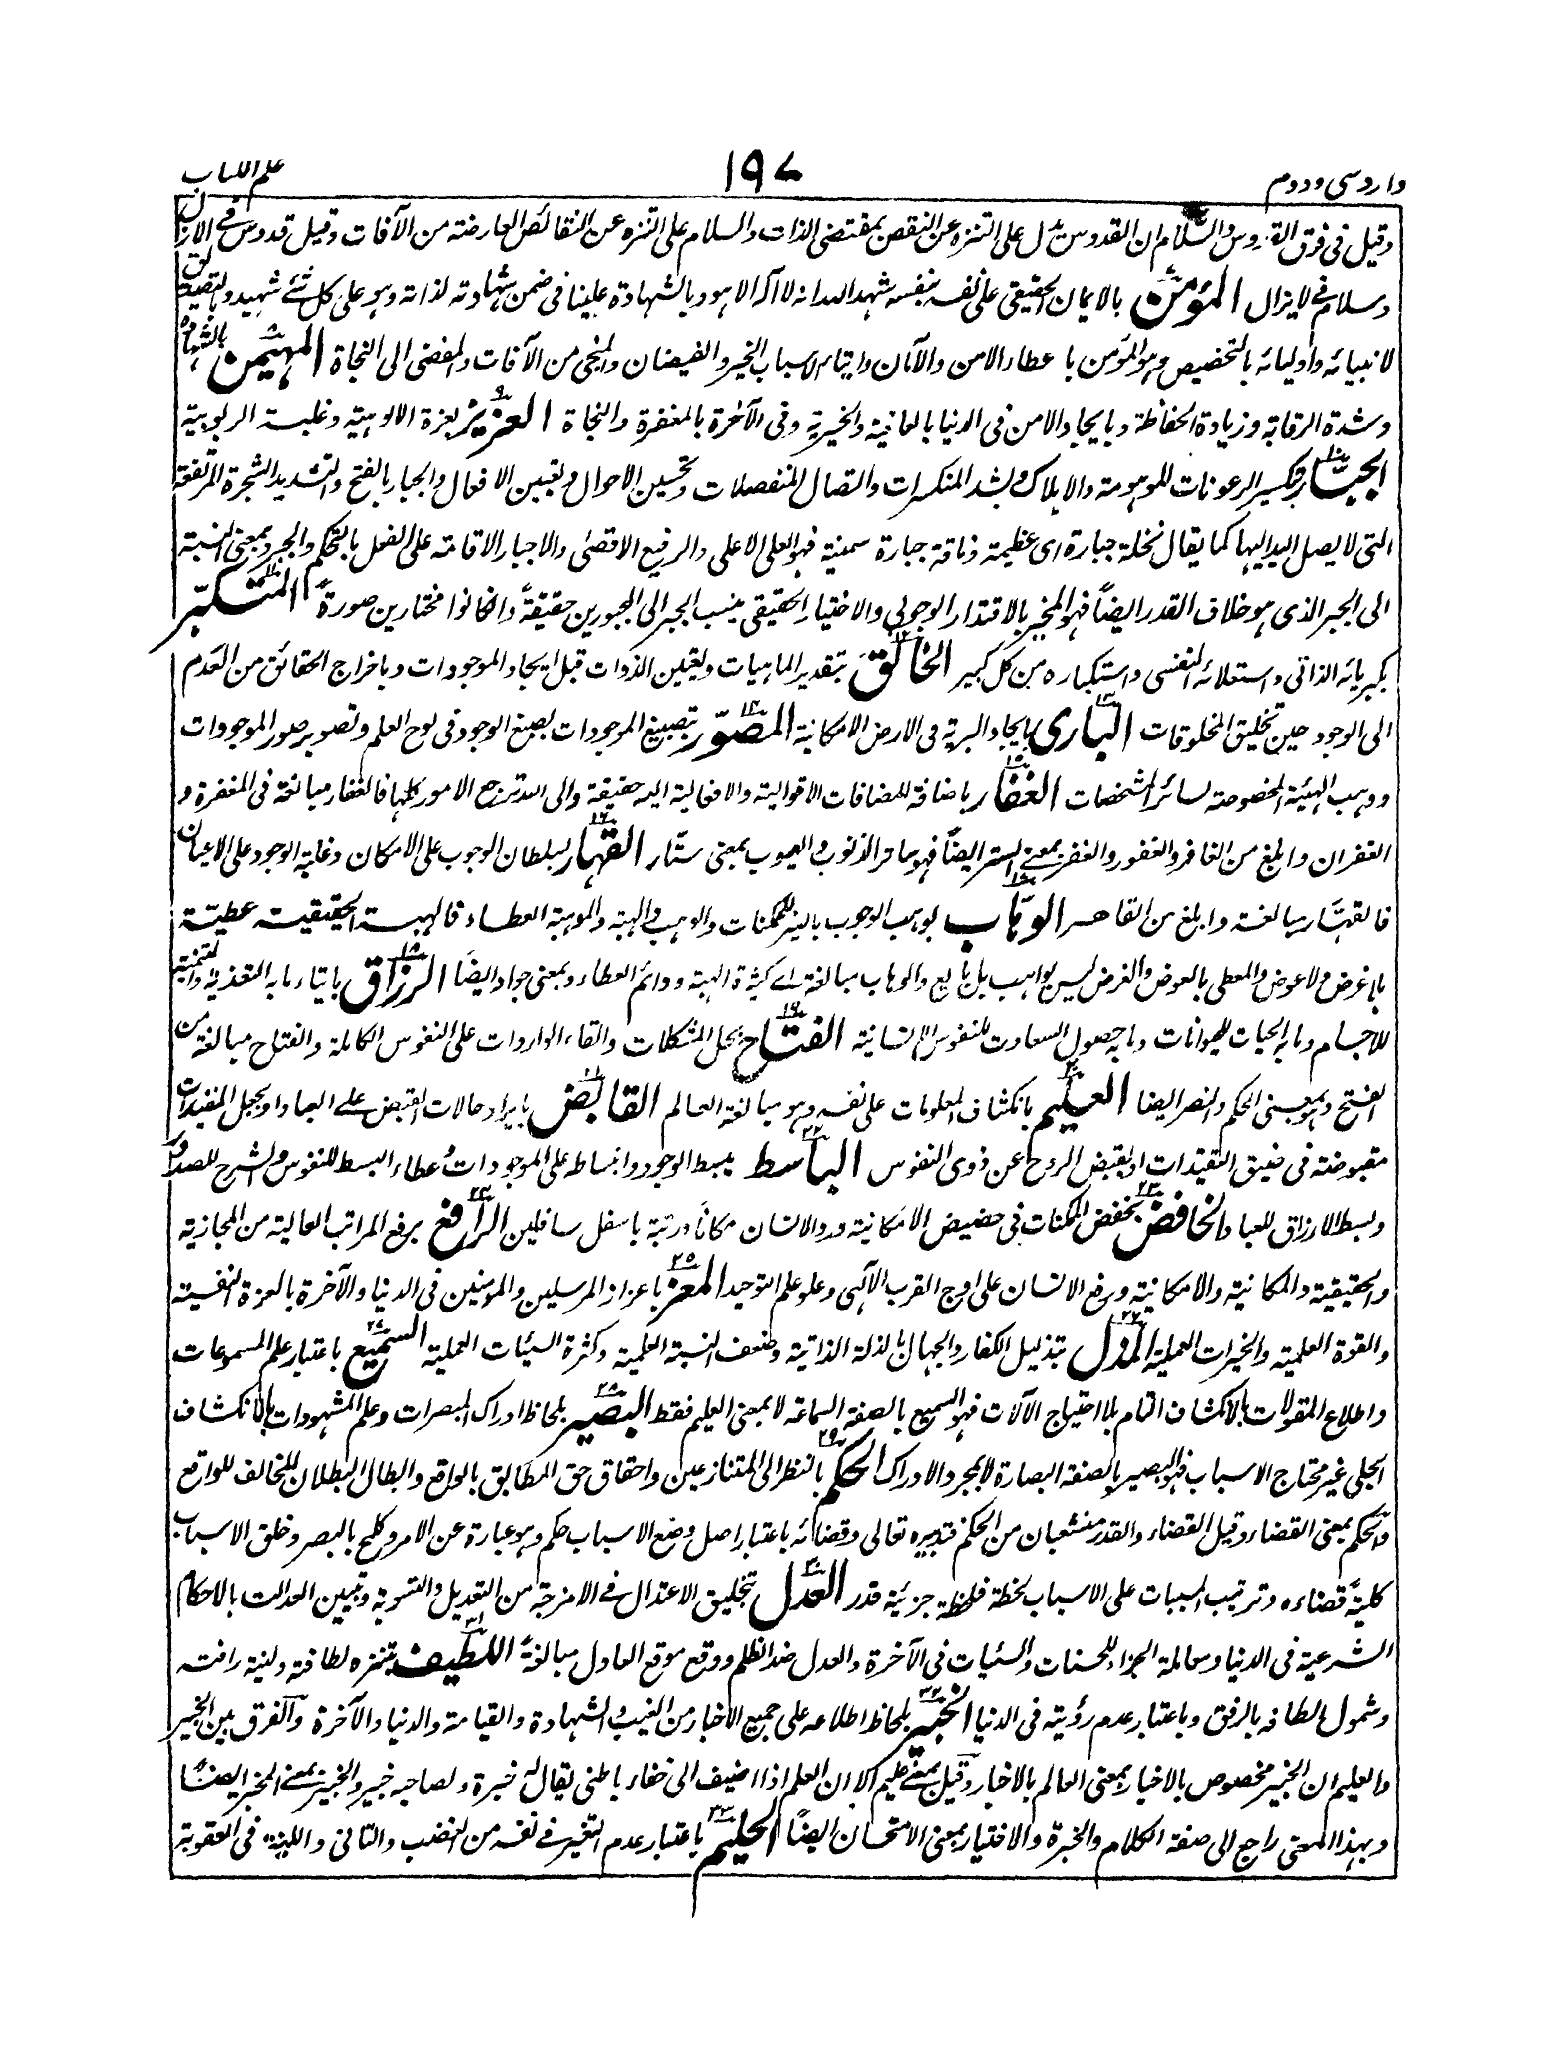 وارد سی و دوم
۱۹۷
علم الکتاب
وقیل فی فرق القدوس والسلام ان القدوس یدل علی التنزه عن النقص بمقتضی الذات والسلام علی التنزه عن النقائص العارضة من الآفات وقیل قدوس فے الازل
وسلام فی لایزال المؤمن بالایمان الحقیقی علی نفسه بنفسه شهد الله انه لا اله الا هو وبالشهادة علینا فی ضمن شهادته لذاته وهو علی کل شئ شهید وبالتصدیق
لانبیائه واولیائه بالتخصیص وهو المؤمن باعطاء الامن والآمان وایتاء الاسباب الخیر والفیضان والمنجی من الآفات والمفضی الی النجاة المهیمن بالشهادة
وشدة الرقابة وزیادة الحفاظة وبایجاد الامن فی الدنیا بالعافیة والخیریة وفی الآخرة بالمغفرة والنجاة العزیز بعزة الالوهیة وغلبة الربوبیة
الجبّار بتکسیر الرعونات الموهومة والاهلاک وبشد المنکسرات واتصال المنفصلات وتحسین الاحوال وتبیین الافعال والجبار بالفتح والتشدید الشجرة المرتفعة
التی لا یصل الید الیها کما یقال نخلة جبارة ای عظیمة وناقة جبارة سمینة فهو العلی الاعلی والرفیع الاقصیٰ والاجبار الاقامة علی الفعل بالتحکم والجبر وبمعنی النسبة
الی الجبر الذی هو خلاف القدر ایضاً فهو المخیر بالاقتدار الوجوبی والاختیار الحقیقی ینسب الجبر الی المجبورین حقیقةً وان کانوا مختارین صورةً المتکبّر
بکبریائه الذاتی واستعلائه النفسی واستکباره من کل کبیر الخالق بتقدیر الماهیات وتعیین الذوات قبل ایجاد الموجودات وباخراج الحقائق من العدم
الی الوجود حین تخلیق المخلوقات الباری بایجاد البریة فی الارض الامکانیة المصوّر بتصبیغ الموجودات بصبغ الوجود فی لوح العلم وتصویر صور الموجودات
ووهب الهیئة المخصوصة لسائر المشخصات الغفار باضافة المضافات الاقوالیة والافعالیة الیه حقیقة والی الله ترجع الامور کلها فالغفار مبالغة فی المغفرة و
الغفران وابلغ من الغافر والغفور والغفر بمعنی الستر ایضاً فهو ساتر الذنوب والعیوب بمعنی ستّار القهار بسلطان الوجوب علی الامکان وغلبة الوجود علی الاعیان
فالقهّار مبالغة وابلغ من القاهر الوهّاب بوهب الوجوب بالغیر للممکنات والوهب والهبة والموهبة العطاء فالهبة الحقیقیة عطیّة
بلا غرض ولا عوض والمعطی بالعوض والغرض لیس بواهب بل بایع والوهاب مبالغة اے کثیرة الهبة ودائم العطاء وبمعنی جواد ایضاً الرزاق بایتاء ما به التغذیة والتنمیة
للاجسام وما به الحیات للحیوانات وما به حصول السعادت للنفوس الانسانیة الفتاح بحل المشکلات والقاء الواردات علی النفوس الکاملة والفتاح مبالغة من
الفتح وهو بمعنی الحکم والنصر ایضا العلیم بانکشاف المعلومات علی نفسه وهو مبالغة العالم القابض بایراد حالات القبض علے العباد او بجعل المقیدات
مقبوضة فی ضیق التقیّدات او بقبض الروح عن ذوی النفوس الباسط ببسط الوجود وانبساطه علی الموجودات وعطاء البسط للنفوس والشرح للصدور
وبسط الارزاق للعباد الخافض بخفض الممکنات فی حضیض الامکانیة ورد الانسان مکاناً ورتبة باسفل سافلین الرافع برفع المراتب العالیة من المجازیة
والحقیقیة والمکانیة والامکانیة ورفع الانسان علی اوج القرب الآلهی وعلو علم التوحید المعز باعزاز المرسلین والمؤمنین فی الدنیا والآخرة بالعزة النفسیة
والقوة العلمیة والخیرات العملیة المذل بتذلیل الکفار والجهال بالذلة الذاتیة وضعف النسبة العلمیة وکثرة السیئات العملیة السمیع باعتبار علم المسموعات
واطلاع المقولات بالانکشاف التام بلا احتیاج الآلات فهو السمیع بالصفة السماعة لا بمعنی العلیم فقط البصیر بلحاظ ادراک المبصرات وعلم المشهودات بالانکشاف
الجلی غیر محتاج الاسباب فهو البصیر بالصفة البصارة لا بمجرد الادراک الحکم بالنظر الی المتنازعین واحقاق حق المطابق بالواقع وابطال البطلان للمخالف للواقع
والحکم بمعنی القضاء وقیل القضاء والقدر منشعبان من الحکم فتدبیره تعالی وقضائه باعتبار اصل وضع الاسباب حکم وهو عبارة عن الامر کلمح بالبصر وخلق الاسباب
کلیّة قضاءه وترتیب المسببات علی الاسباب لحظة فلحظة جزئیة قدر العدل بتخلیق الاعتدال فے الامزجة من التعدیل والتسویة وتبیین العدالت بالاحکام
الشرعیة فی الدنیا ومعاملة الجزاء للحسنات والسئیات فی الآخرة والعدل ضد الظلم ووقع موقع العادل مبالغةً اللطیف بتنزه لطافته ولنیة رافته
وشمول الطافه بالرفق وباعتبار عدم رؤیته فی الدنیا الخبیر بلحاظ اطلاعه علی جمیع الاخبار من الغیب والشهادة والقیامة والدنیا والآخرة والفرق بین الخبیر
والعلیم ان الخبیر مخصوص بالاخبار بمعنی العالم بالاخبار وقیل بمعنے علیم الا ان العلم اذا اضیف الی خفاء باطنی یقال له خبرة ولصاحبه خبیر والخبیر بمعنے المخبر ایضاً
وبهذا المعنی راجع الی صفة الکلام والخبرة والاختیار بمعنی الامتحان ایضاً الحلیم باعتبار عدم التغیر فے نفسه من الغضب والتانی واللینة فی العقوبة